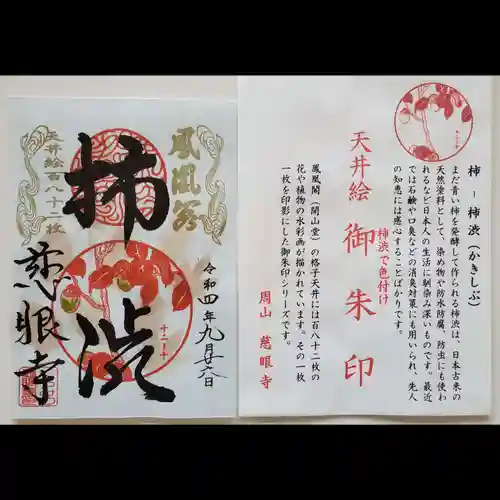 鳳凰閣
令和四年九月廿六日
柿渋
十二ノ十
天井絵百八十二枚
慈眼寺
柿 － 柿渋（かきしぶ）
まだ青い柿を発酵して作られる柿渋は、日本古来の
天然塗料として、染め物や防水防腐、防虫にも使わ
れるなど日本人の生活に馴染み深いものです。最近
では石鹸や口臭などの消臭対策にも用いられ、先人
の知恵には感心することばかりです。
柿渋で色付け
天井絵 御朱印
鳳凰閣（開山堂）の格子天井には百八十二枚の
花や植物の水彩画が描かれています。その一枚
一枚を印影にした御朱印シリーズです。
周山 慈眼寺